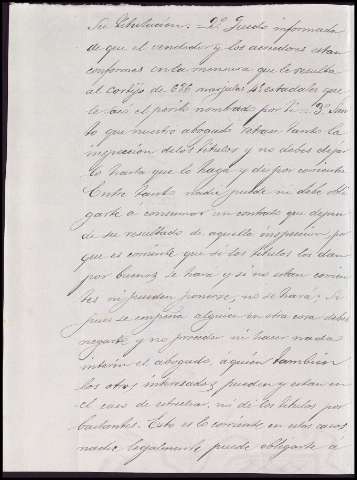 su titulacion. = 2º Quedo informada
de que el vendedor y los acreedores estan
conformes en la mensura que le resulta
al cortijo de 636 marjales 42 estadales que
le asi el perito nombrado por ti = 3º Sien-
to que nuestro abogado retrase tanto la
inspeccion de los titulos y no debes dejar
lo hasta que lo haga y dé por corriente.
Entre tanto nadie puede ni debe obli
garte á consumar un contrato que depen
de su resultado de aquella inspeccion por
que es corriente que si los titulos los dan
por buenos se hará y si no estan corrien
tes ni pueden ponerse, no se hará: Si
pues se empeña alguien en otra cosa debes
negarte y no proceder ni hacer nada
interin el abogado, a quien tambien
los otros interesados pueden y estan en
el caso de estrechar, ni dé los titulos por
bastantes. Esto es lo corriente en estos casos
nadie legalmente puede obligarte á